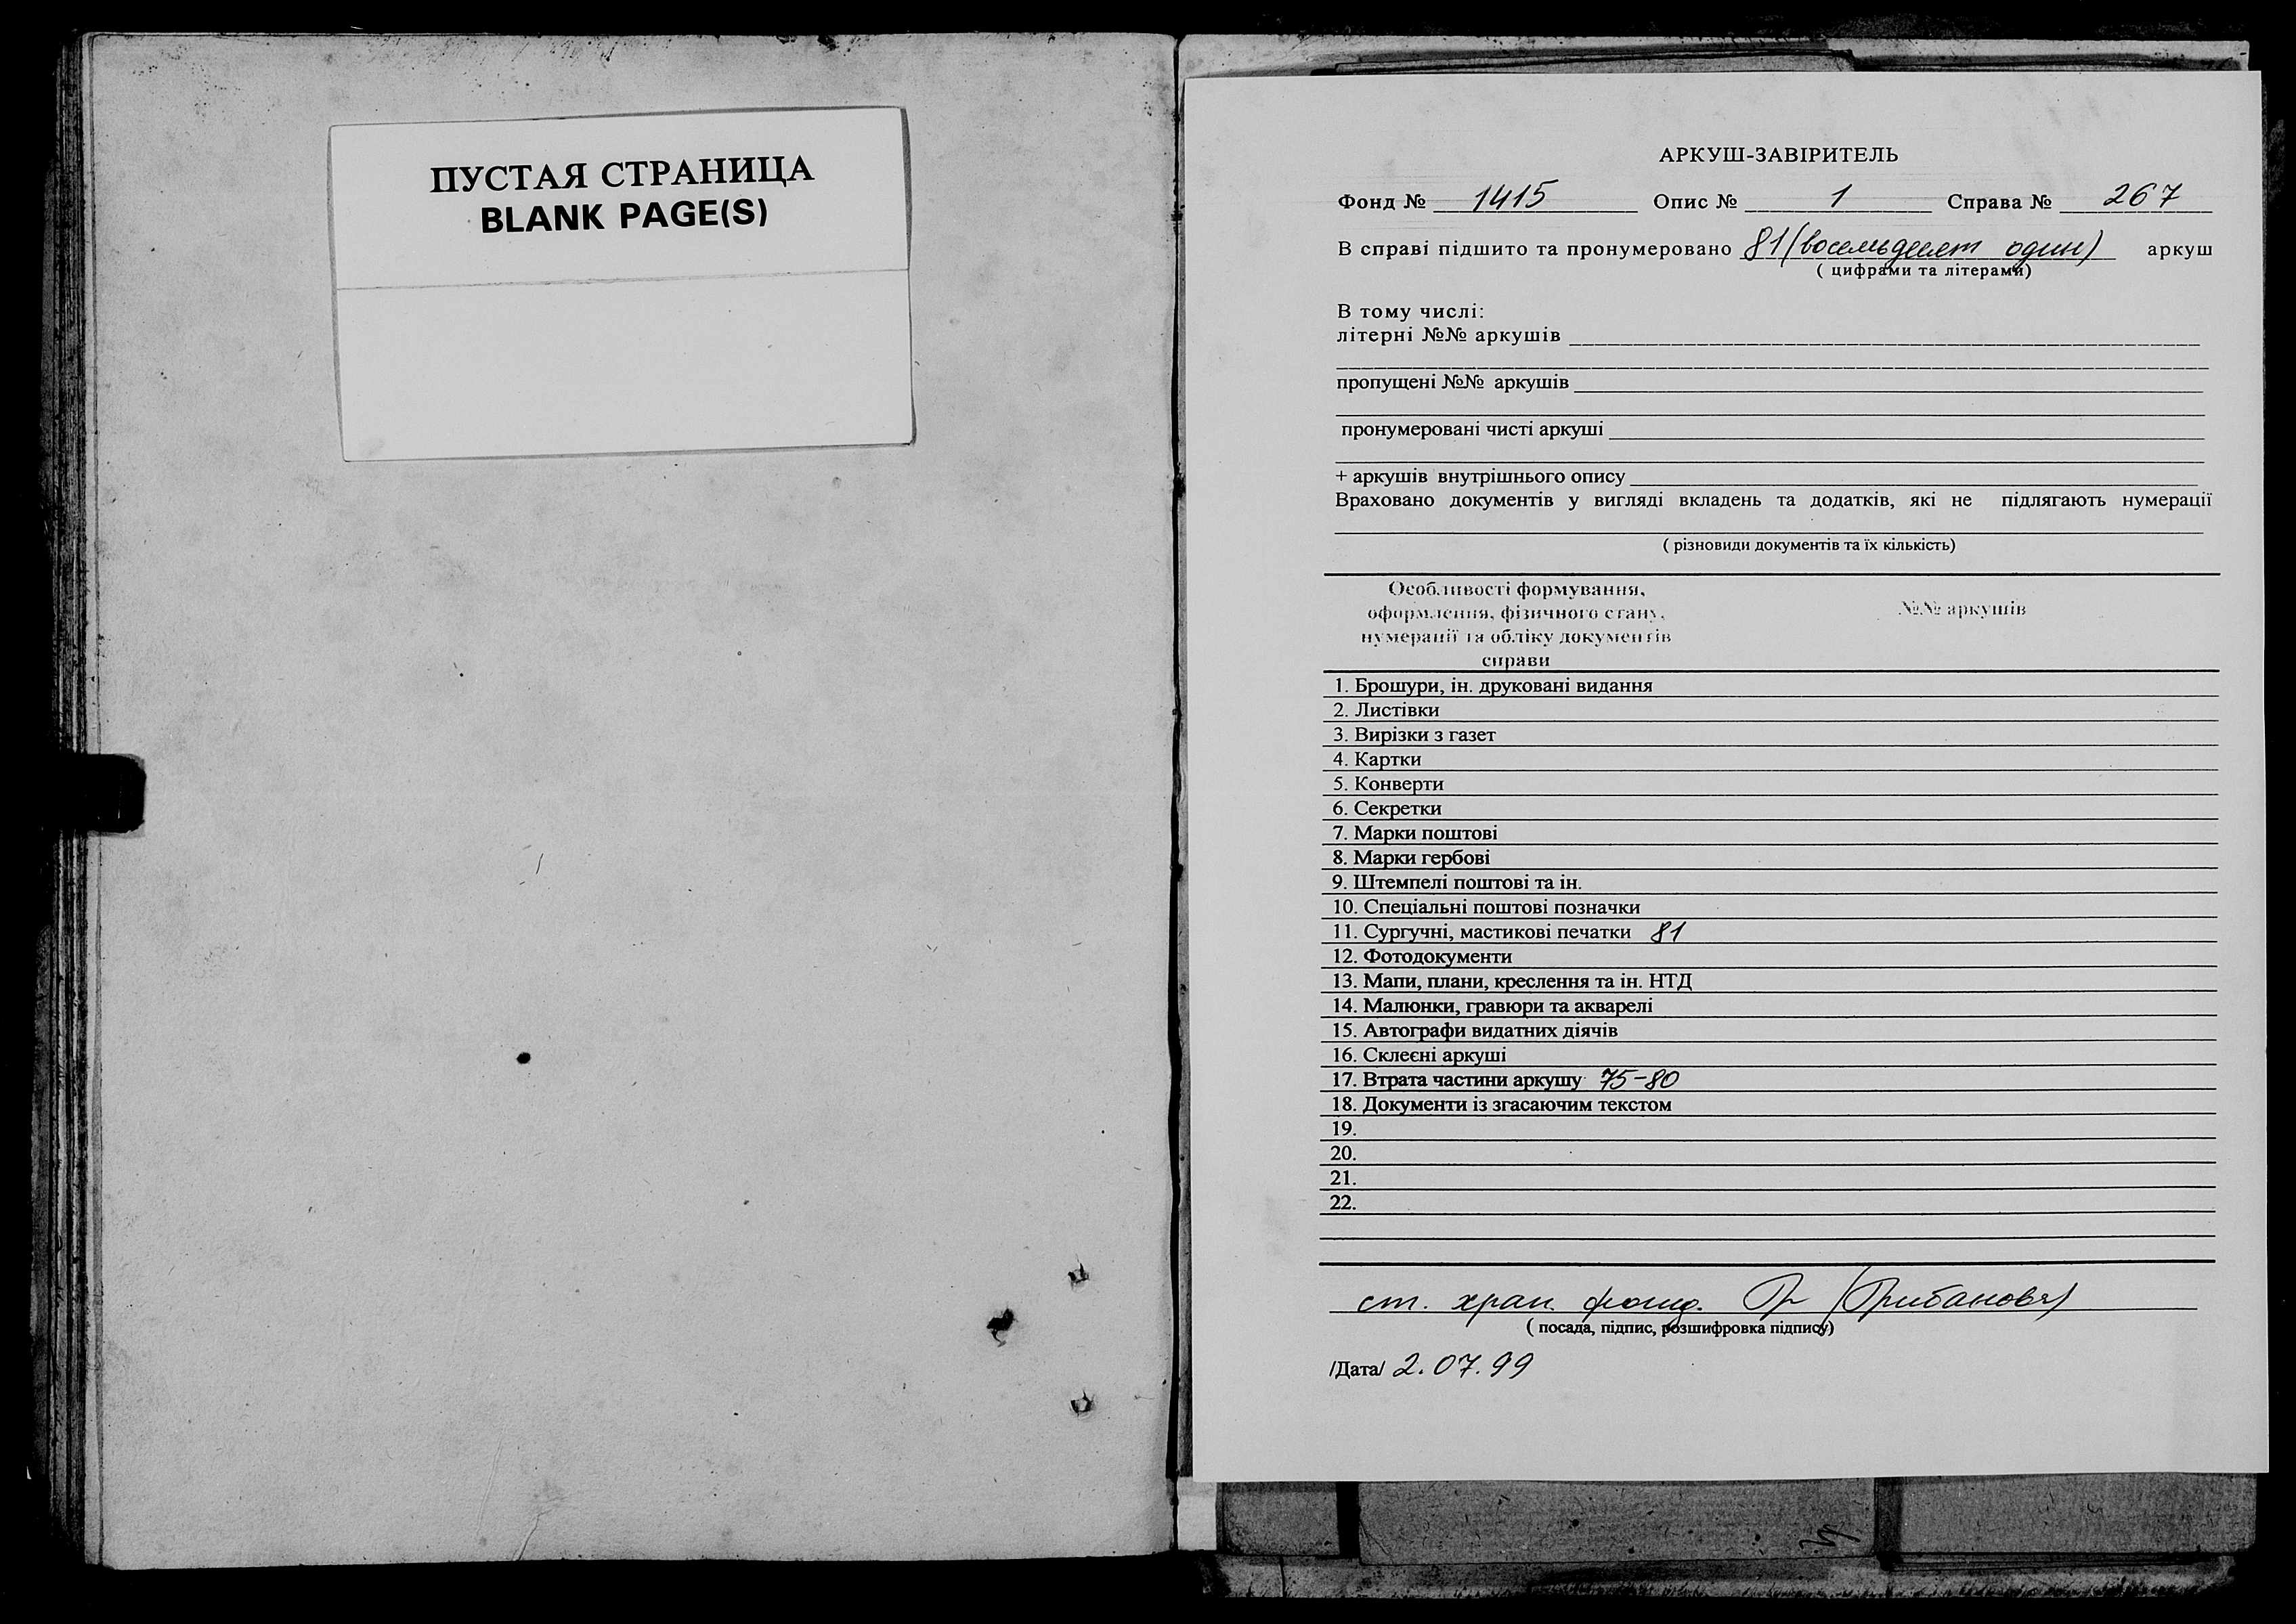 ПУСТАЯ СТРАНИЦА
BLANK PAGE(S)
АРКУШ-ЗАВІРИТЕЛЬ
Фонд № 1415 Опис № 1 Справа № 267
В справі підшито та пронумеровано 81 (восемьдесят один) аркуш
( цифрами та літерами)
В тому числі:
літерні №№ аркушів
пропущені №№ аркушів
пронумеровані чисті аркуші
+ аркушів внутрішнього опису
Враховано документів у вигляді вкладень та додатків, які не підлягають нумерації
( різновиди документів та їх кількість)
Особливості формування,
оформлення, фізичного стану, №№ аркушів
нумерації та обліку документів
справи
1. Брошури, ін. друковані видання
2. Листівки
3. Вирізки з газет
4. Картки
5. Конверти
6. Секретки
7. Марки поштові
8. Марки гербові
9. Штемпелі поштові та ін.
10. Спеціальні поштові позначки
11. Сургучні, мастикові печатки 81
12. Фотодокументи
13. Мапи, плани, креслення та ін. НТД
14. Малюнки, гравюри та акварелі
15. Автографи видатних діячів
16. Склеєні аркуші
17. Втрата частини аркушу 75-80
18. Документи із згасаючим текстом
19.
20.
21.
22.
ст. хран. фонд. (Грибанова)
( посада, підпис, розшифровка підпису)
/Дата/ 2.07.99